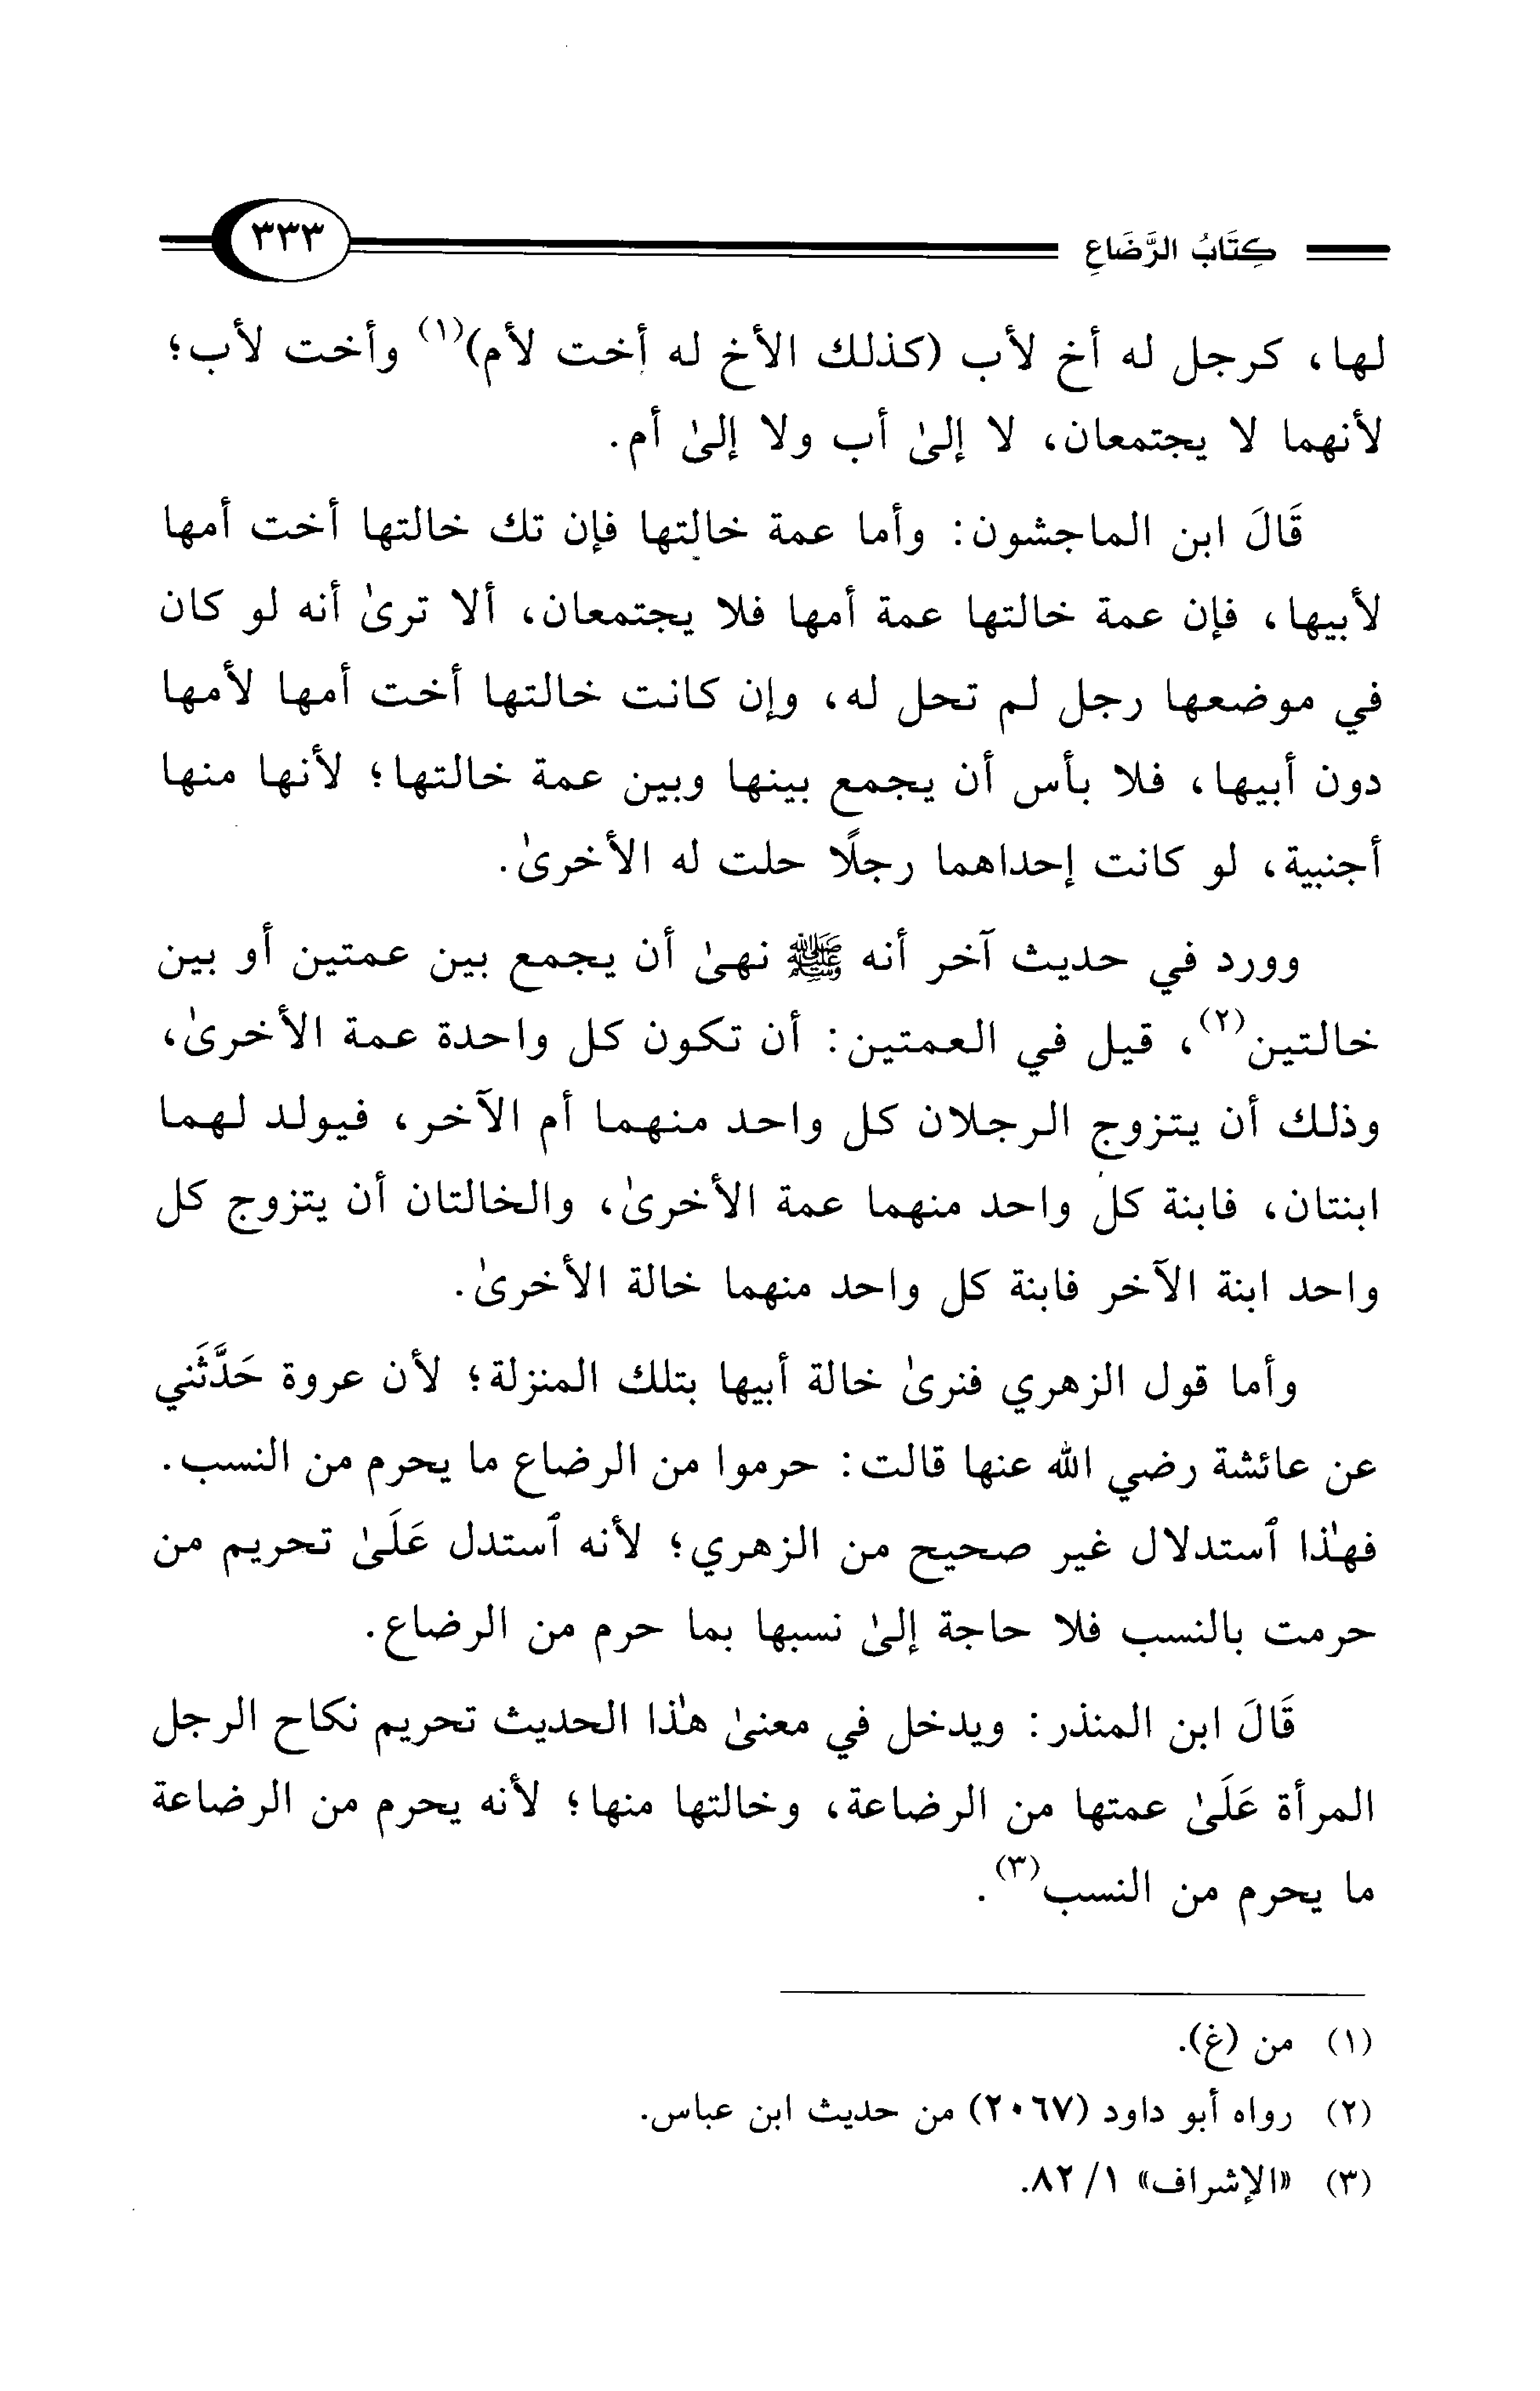 كِتَابُ الرَّضَاعِ ٣٣٣
لها، كرجل له أخ لأب (كذلك الأخ له أخت لأم)(١) وأخت لأب؛
لأنهما لا يجتمعان، لا إلىٰ أب ولا إلىٰ أم.
قَالَ ابن الماجشون: وأما عمة خالتها فإن تك خالتها أخت أمها
لأبيها، فإن عمة خالتها عمة أمها فلا يجتمعان، ألا ترىٰ أنه لو كان
في موضعها رجل لم تحل له، وإن كانت خالتها أخت أمها لأمها
دون أبيها، فلا بأس أن يجمع بينها وبين عمة خالتها؛ لأنها منها
أجنبية، لو كانت إحداهما رجلًا حلت له الأخرىٰ.
وورد في حديث آخر أنه ﷺ نهىٰ أن يجمع بين عمتين أو بين
خالتين(٢)، قيل في العمتين: أن تكون كل واحدة عمة الأخرىٰ،
وذلك أن يتزوج الرجلان كل واحد منهما أم الآخر، فيولد لهما
ابنتان، فابنة كل واحد منهما عمة الأخرىٰ، والخالتان أن يتزوج كل
واحد ابنة الآخر فابنة كل واحد منهما خالة الأخرىٰ.
وأما قول الزهري فنرىٰ خالة أبيها بتلك المنزلة؛ لأن عروة حَدَّثَني
عن عائشة رضي الله عنها قالت: حرموا من الرضاع ما يحرم من النسب.
فهٰذا ٱستدلال غير صحيح من الزهري؛ لأنه ٱستدل عَلَىٰ تحريم من
حرمت بالنسب فلا حاجة إلىٰ نسبها بما حرم من الرضاع.
قَالَ ابن المنذر: ويدخل في معنىٰ هٰذا الحديث تحريم نكاح الرجل
المرأة عَلَىٰ عمتها من الرضاعة، وخالتها منها؛ لأنه يحرم من الرضاعة
ما يحرم من النسب(٣).
(١) من (غ).
(٢) رواه أبو داود (٢٠٦٧) من حديث ابن عباس.
(٣) «الإشراف» ١/ ٨٢.